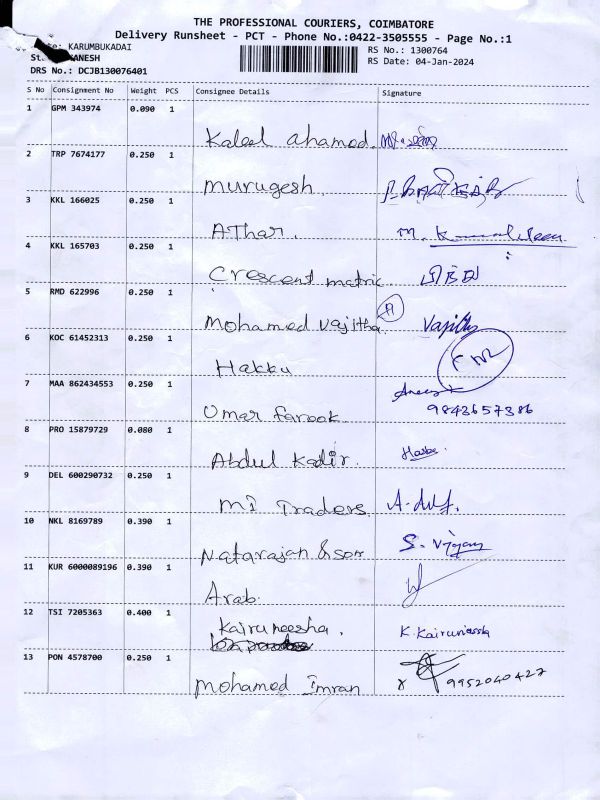 THE PROFESSIONAL COURIERS, COIMBATORE
Delivery Runsheet - PCT - Phone No.:0422-3505555 - Page No.:1
KARUMBUKADAI
RS No.: 1300764
RS Date: 04-Jan-2024
DRS No.: DCJB130076401
S No Consignment No Weight PCS Consignee Details Signature
1 GPM 343974 0.090 1
Kaleel ahamed.
2 TRP 7674177 0.250 1
Murugesh.
3 KKL 166025 0.250 1
AThar. M.
4 KKL 165703 0.250 1
Crescent matric
5 RMD 622996 0.250 1
Mohamed vajitha A
6 KOC 61452313 0.250 1
Hakku
7 MAA 862434553 0.250 1
Umar farook 9843657386
8 PRO 15879729 0.080 1
Abdul Kadir.
9 DEL 600290732 0.250 1
MI Traders
10 NKL 8169789 0.390 1
Natarajan & son S. Vijayan
11 KUR 6000089196 0.390 1
Arab.
12 TSI 7205363 0.400 1
Kairuneesha. K. Kairunissha
13 PON 4578700 0.250 1
Mohamed Imran 9952040427